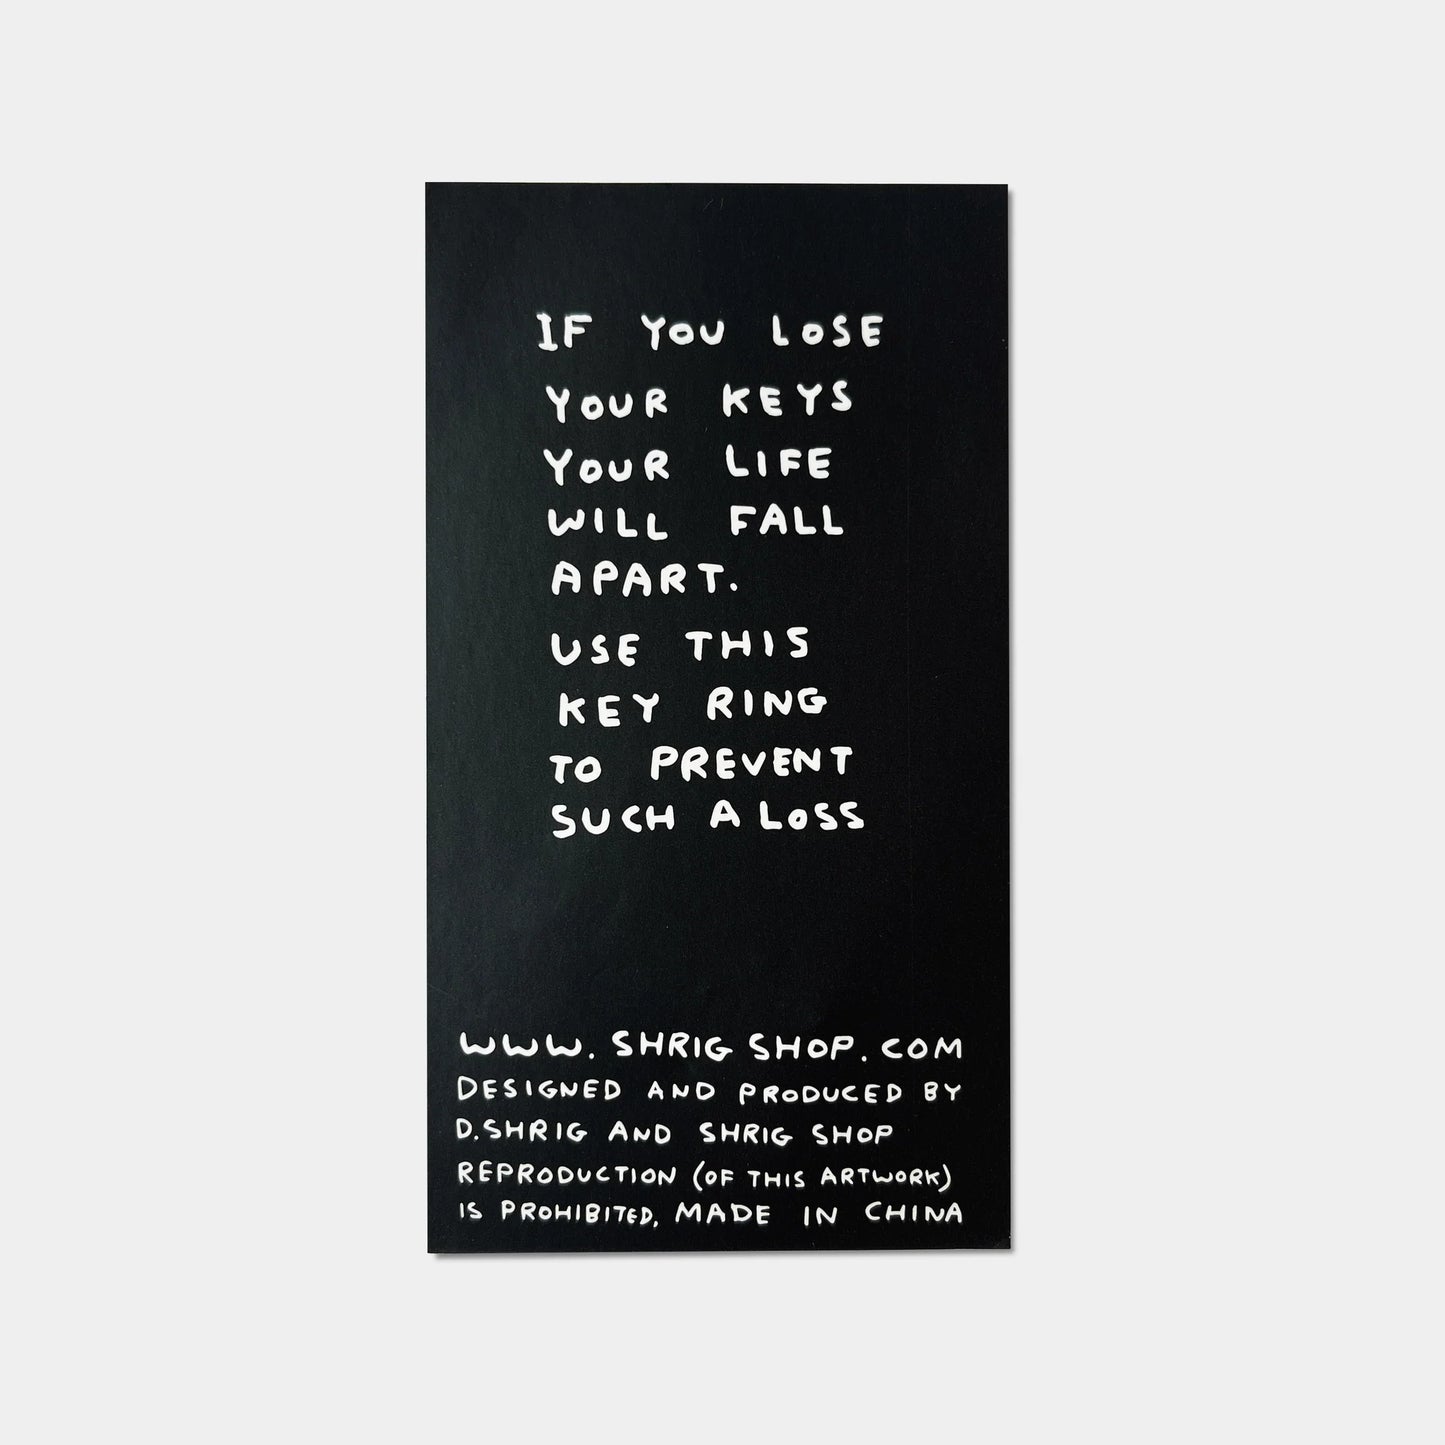 IF YOU LOSE
YOUR KEYS
YOUR LIFE
WILL FALL
APART.
USE THIS
KEY RING
TO PREVENT
SUCH A LOSS
WWW. SHRIG SHOP. COM
DESIGNED AND PRODUCED BY
D. SHRIG AND SHRIG SHOP
REPRODUCTION (OF THIS ARTWORK)
IS PROHIBITED, MADE IN CHINA